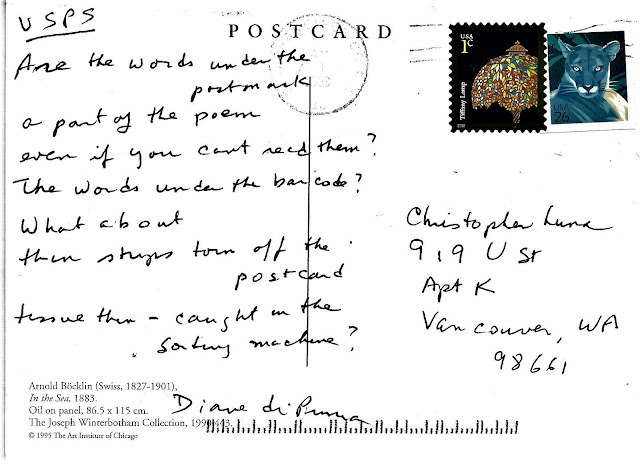 USPS
POSTCARD
Are the words under the
postmark
a part of the poem
even if you can't read them?
The words under the barcode?
What about
thin strips torn off the
postcard
tissue thin – caught in the
sorting machine?
Diane di Prima
Arnold Böcklin (Swiss, 1827-1901),
In the Sea, 1883.
Oil on panel, 86.5 x 115 cm.
The Joseph Winterbotham Collection, 1990.443.
© 1995 The Art Institute of Chicago
USA
1c
Tiffany Lamp
USA
26
Christopher Luna
919 U St
Apt K
Vancouver, WA
98661